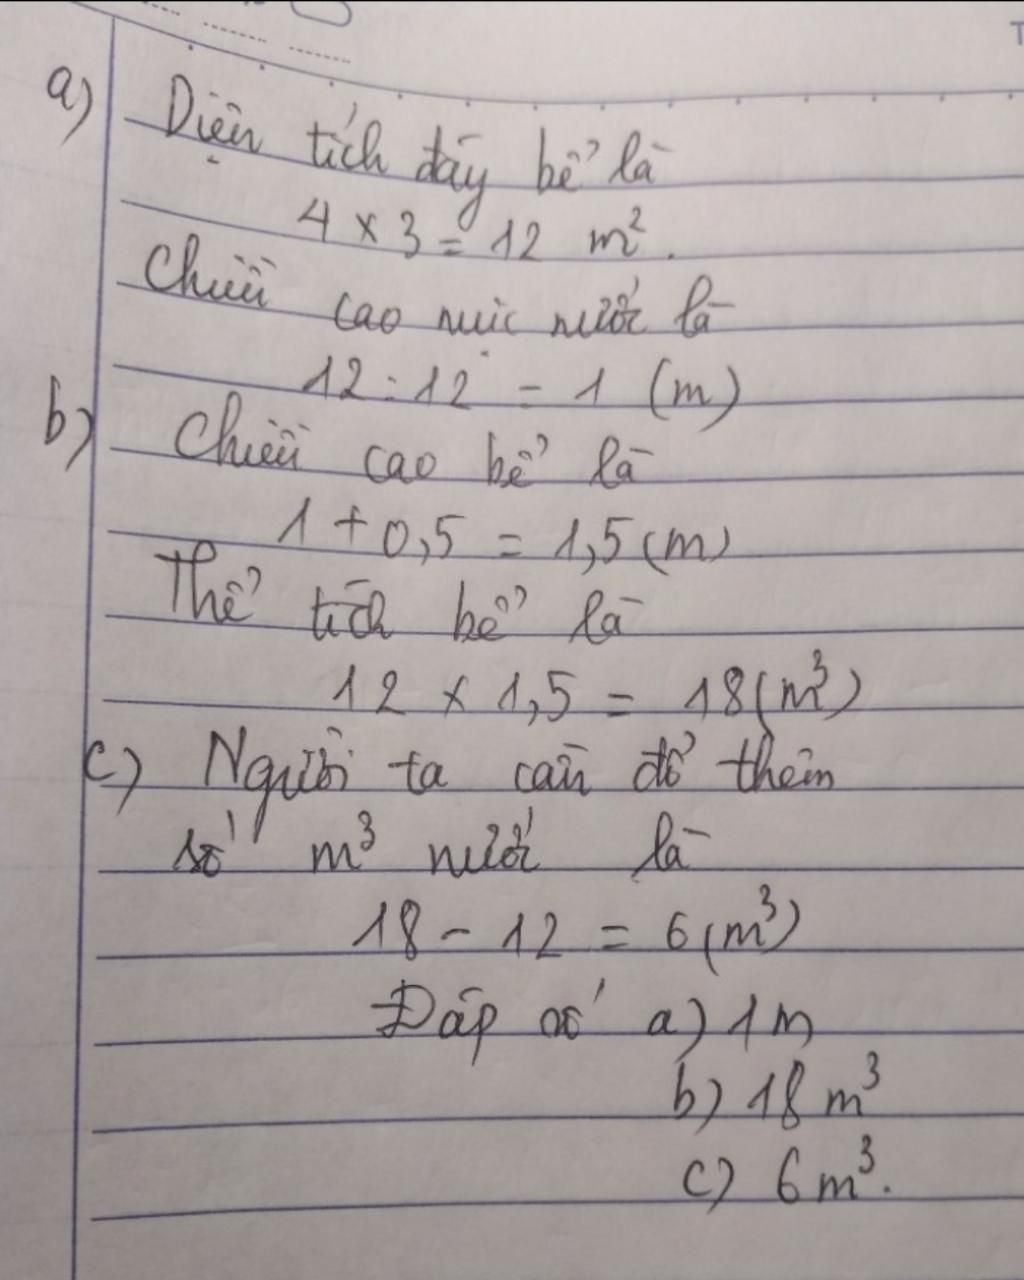 a) Diện tích đáy bể là
4 x 3 = 12 m².
Chiều cao mức nước là
12 : 12 = 1 (m)
b) Chiều cao bể là
1 + 0,5 = 1,5 (m)
Thể tích bể là
12 x 1,5 = 18 (m³)
c) Người ta cần đổ thêm
số m³ nước là
18 - 12 = 6 (m³)
Đáp số a) 1 m
b) 18 m³
c) 6 m³.